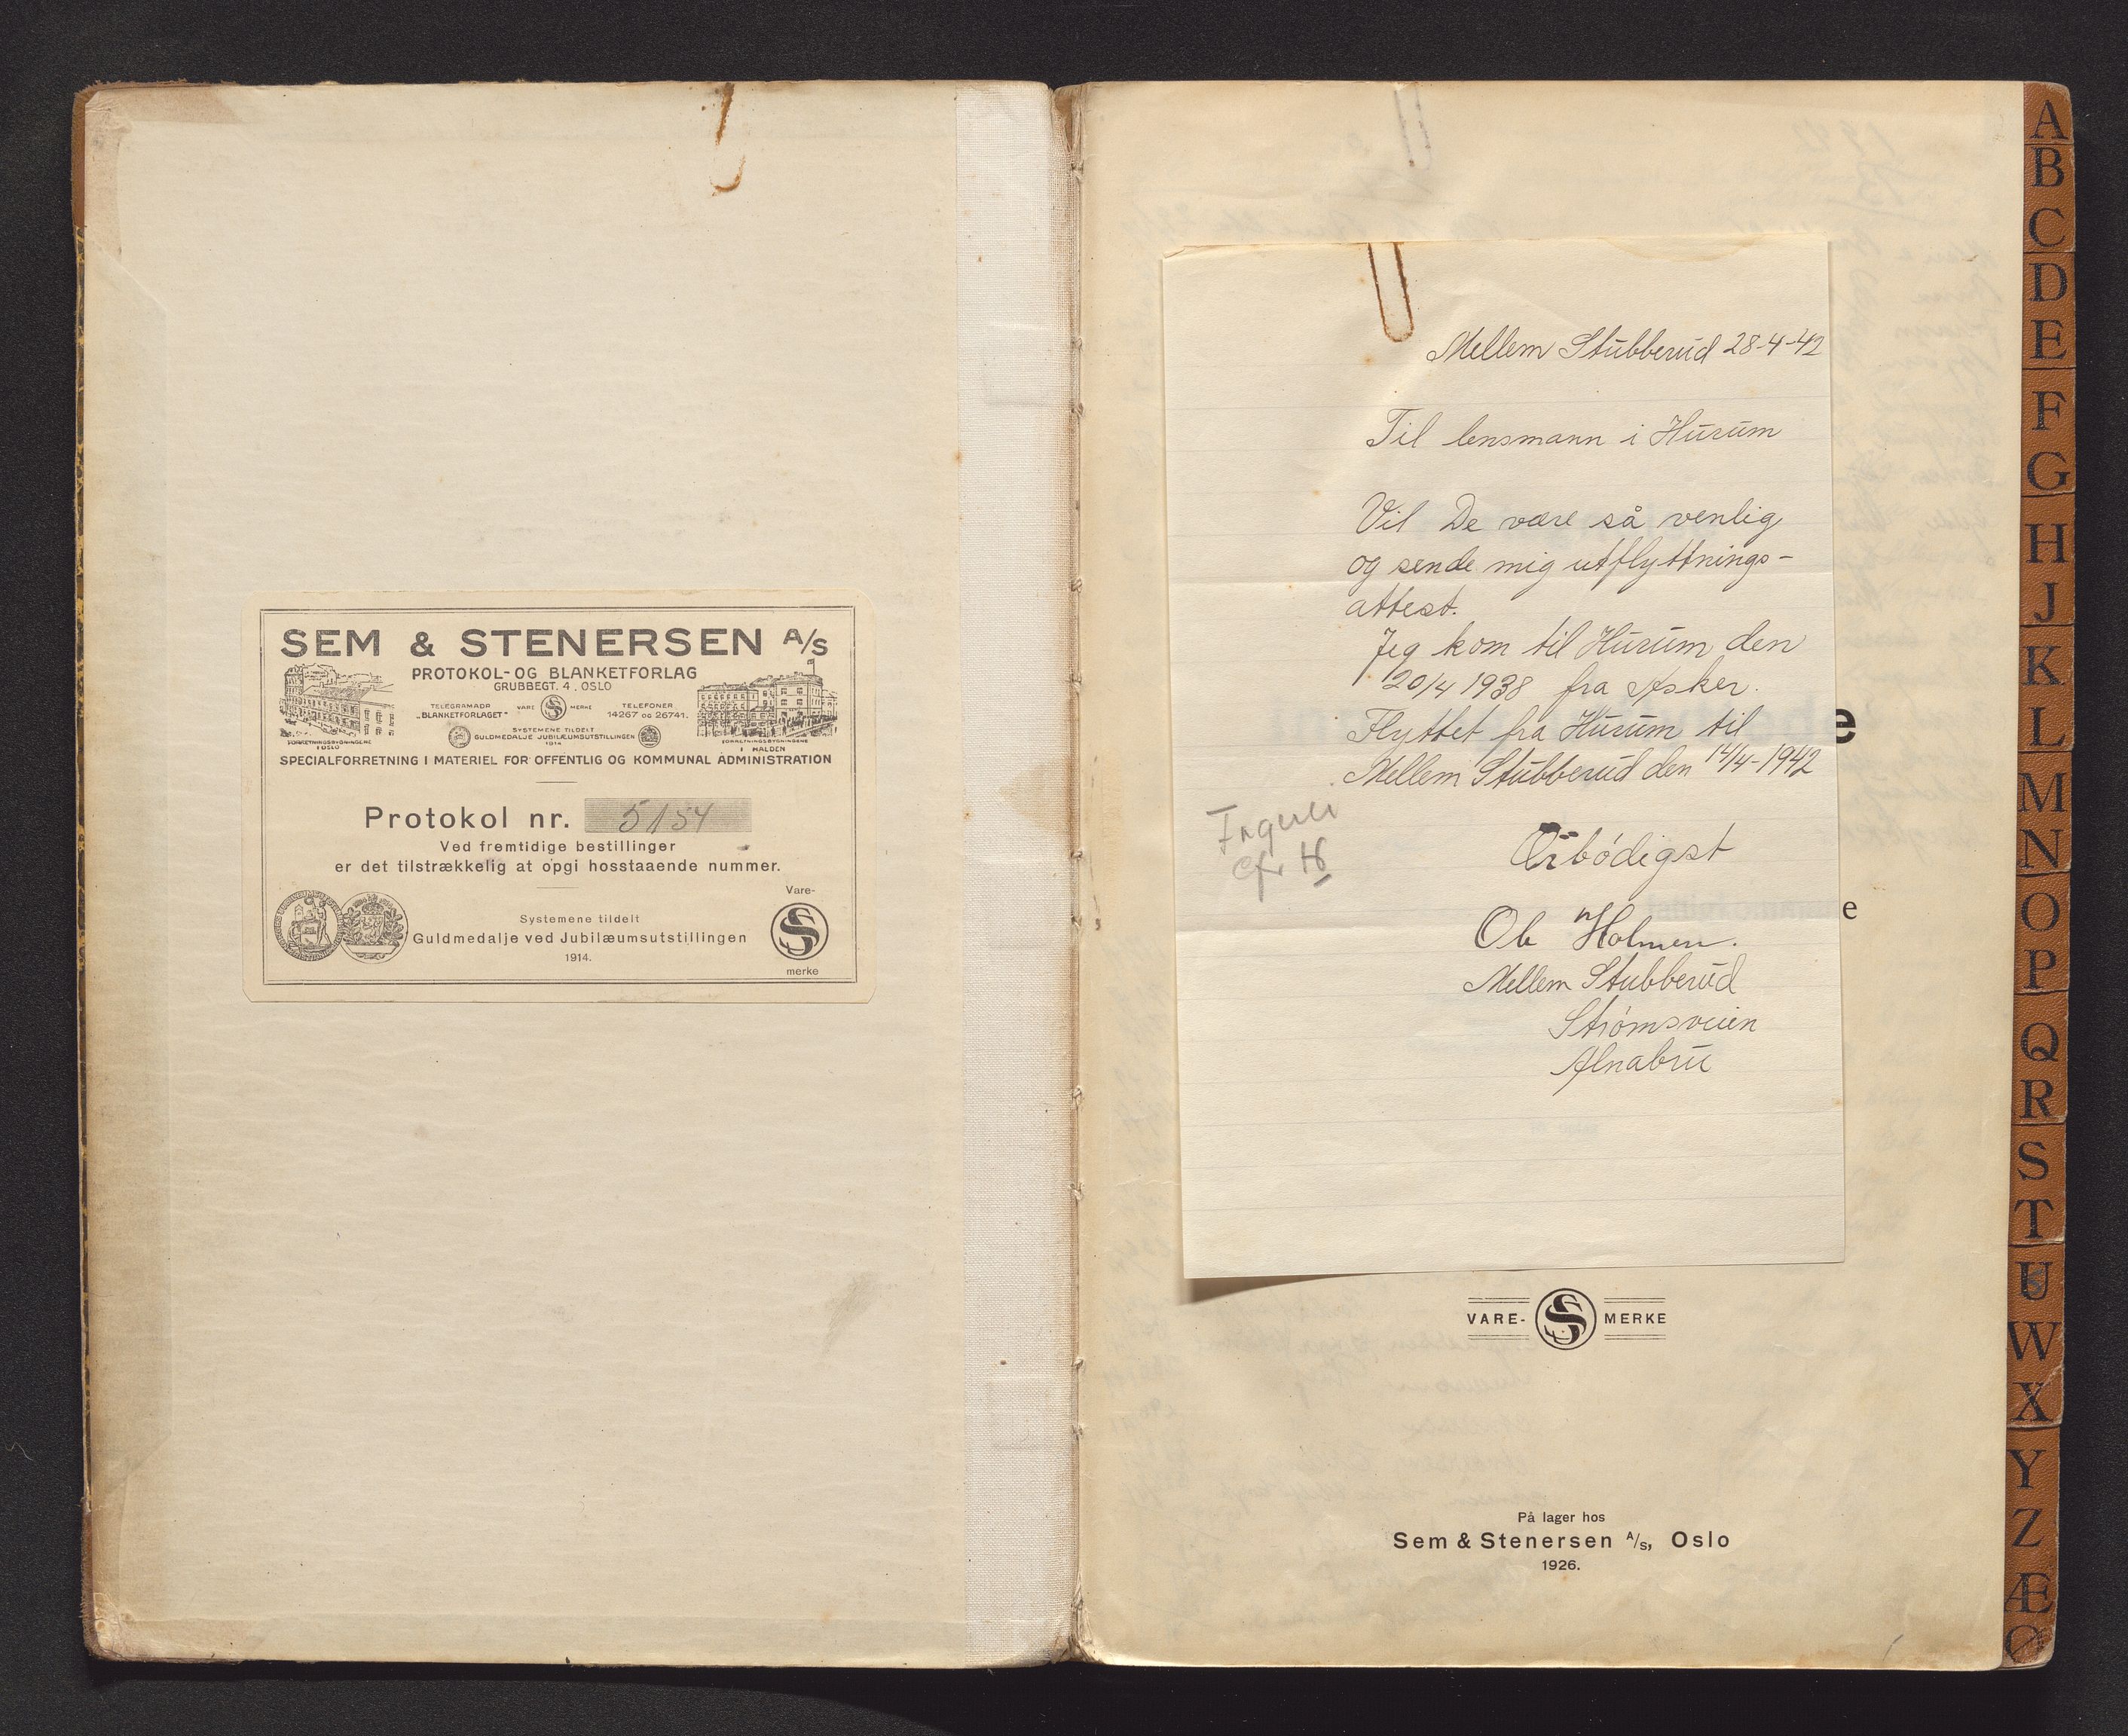 SEM & STENERSEN A/S
PROTOKOL- OG BLANKETFORLAG
GRUBBEGT. 4, OSLO
TELEGRAMADR
„BLANKETFORLAGET"
VARE MERKE
TELEFONER
14267 OG 26741.
SYSTEMENE TILDELT
GULDMEDALJE JUBILÆUMSUTSTILLINGEN
1914
FORRETNINGSBYGNINGENE
I OSLO
FORRETNINGSBYGNINGENE
I HALDEN
SPECIALFORRETNING I MATERIEL FOR OFFENTLIG OG KOMMUNAL ADMINISTRATION
Protokol nr. 5154
Ved fremtidige bestillinger
er det tilstrækkelig at opgi hosstaaende nummer.
Systemene tildelt
Guldmedalje ved Jubilæumsutstillingen
1914.
Vare-
merke
Mellem Stubberud 28-4-42
Til lensmann i Hurum
Vil De være så venlig
og sende mig utflyttnings-
attest.
Jeg kom til Hurum den
20/4 1938 fra Asker.
Flyttet fra Hurum til
Mellem Stubberud den 14/4-1942
Ærbødigst
Ole Holmen.
Mellem Stubberud
Strømsveien
Alnabru
e
e
VARE- MERKE
På lager hos
Sem & Stenersen A/S, Oslo
1926.
A
B
C
D
E
F
G
H
J
K
L
M
N
O
P
Q
R
S
T
U
W
X
Y
Z
Æ
Ø